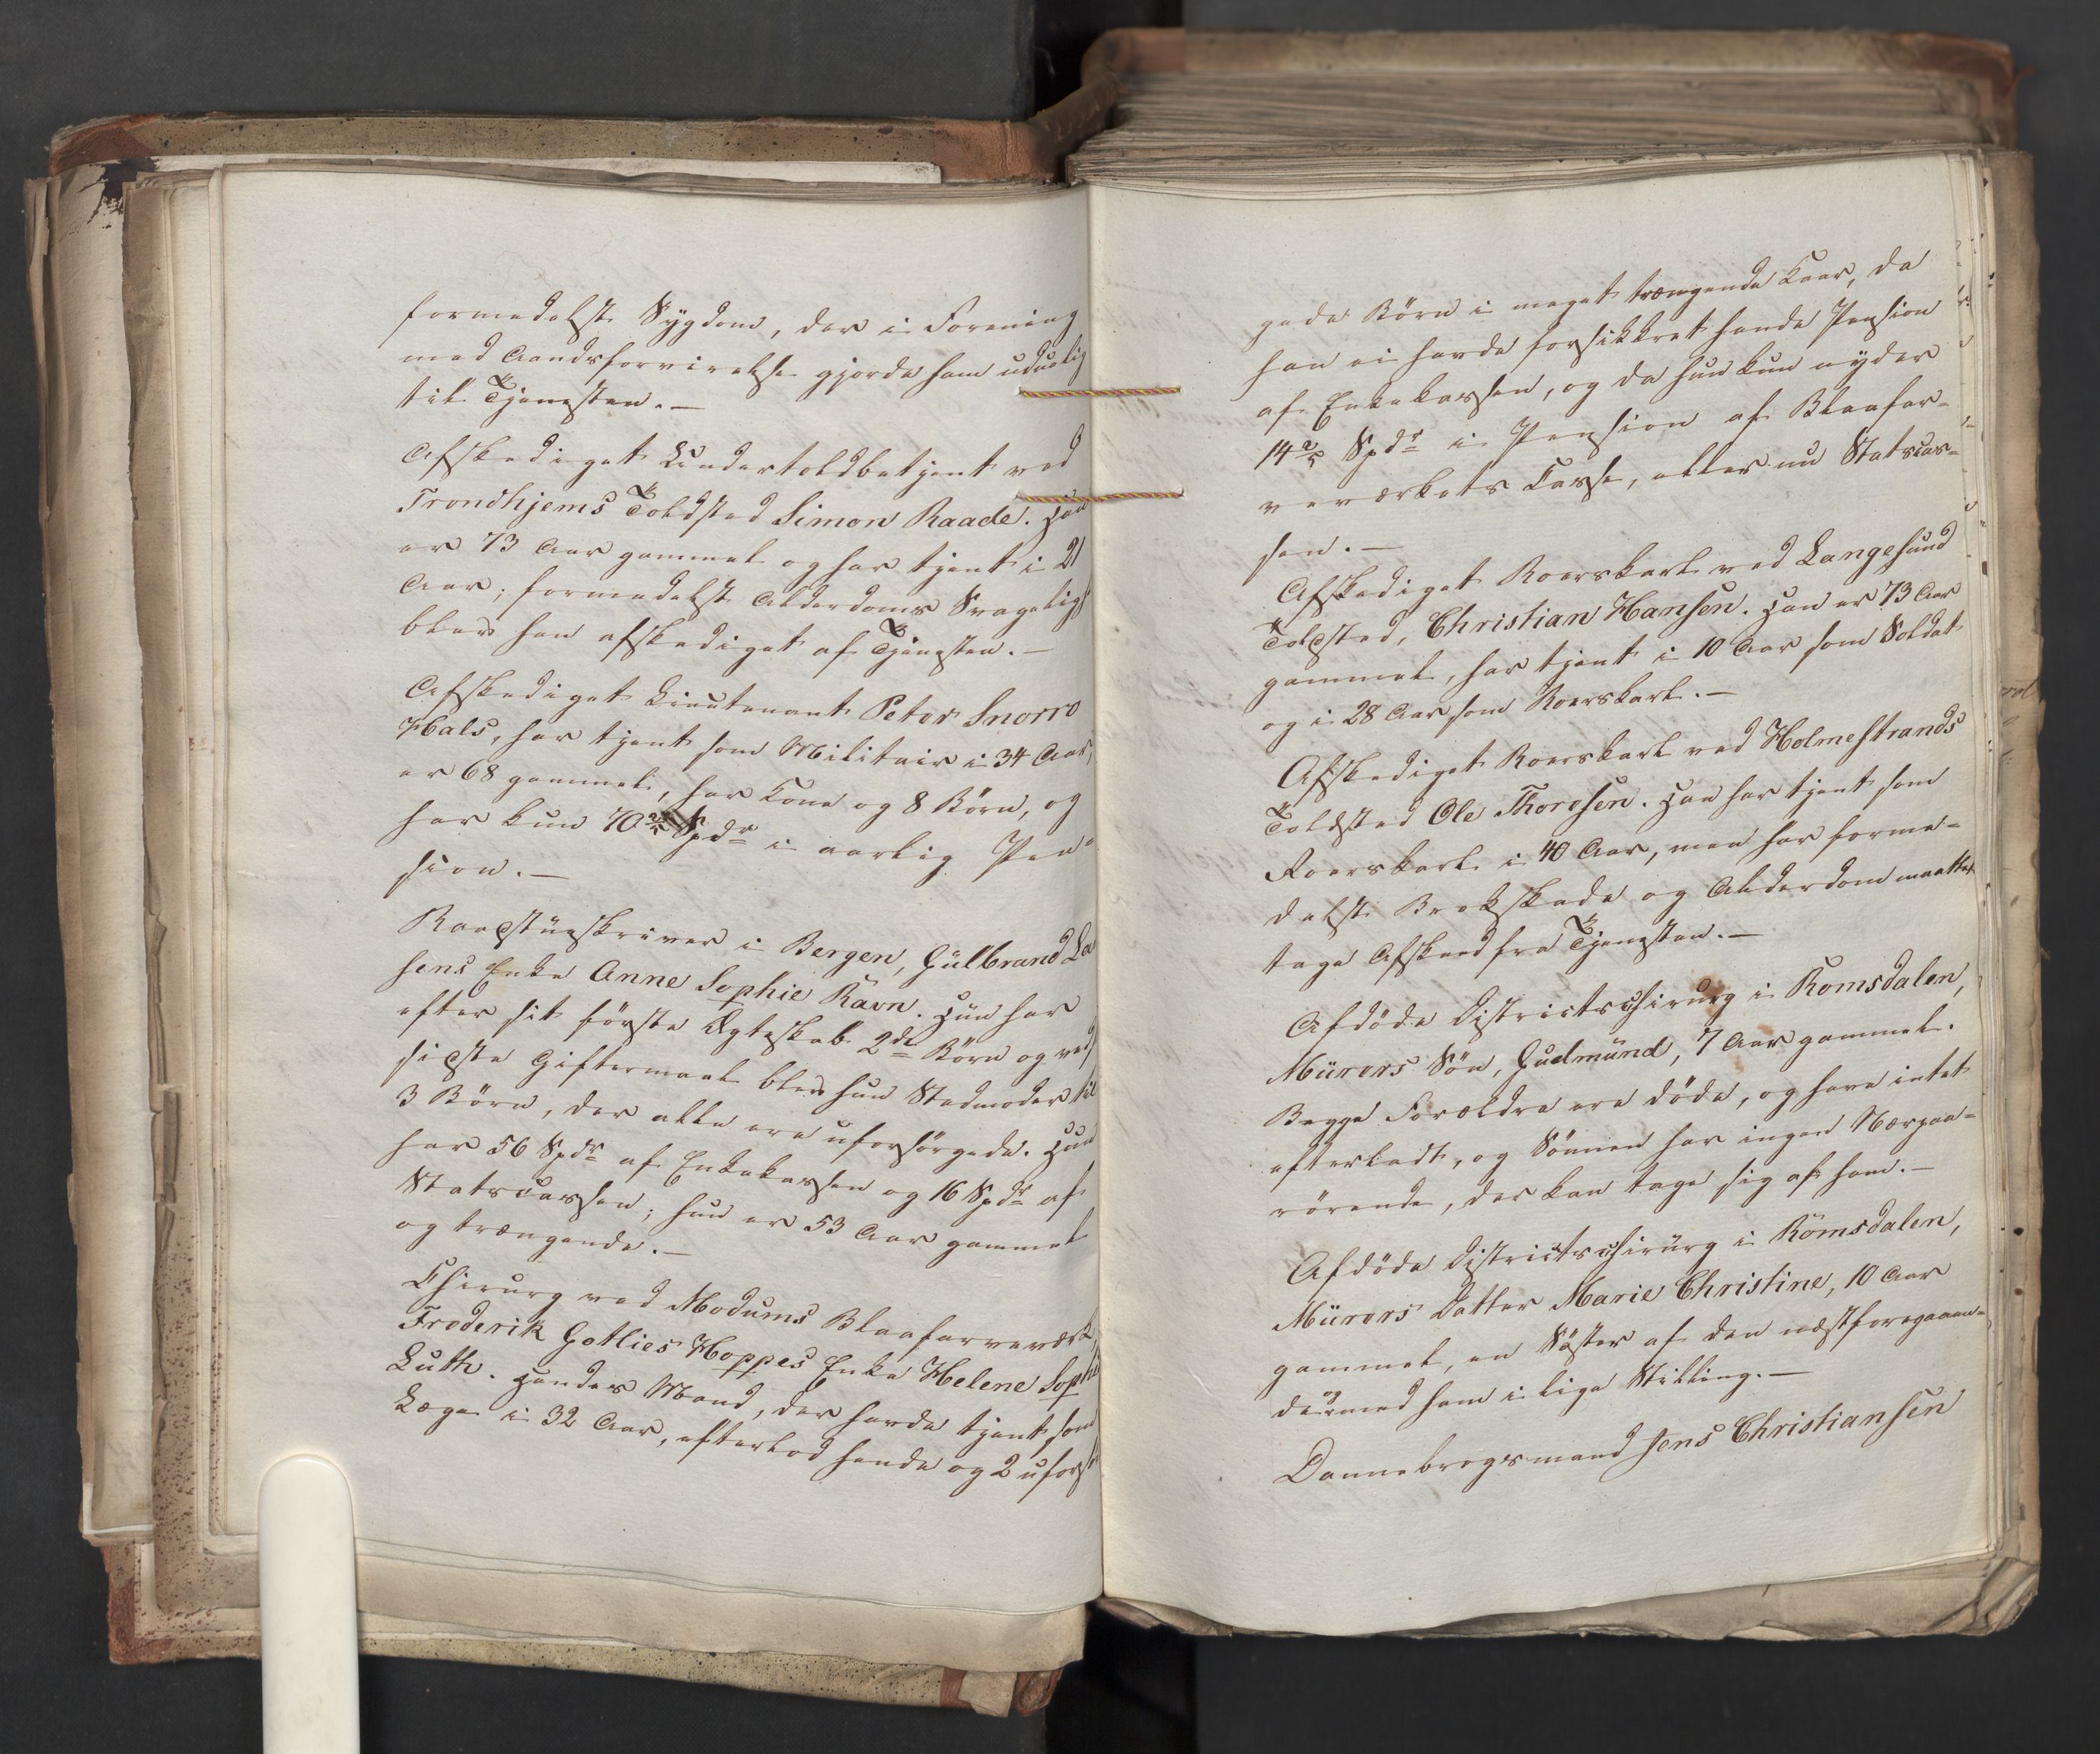 formedelst Sygdom, der i Forening
med Aandsforvirelse gjorde ham uduelig
til Tjenesten.—
Afskediget Undertoldbetjent ved
Trondhjems Toldsted Simon Raade. Han
er 73 Aar gammel og har tjent i 21
Aar; formedelst Alderdoms Svagelig
blev han afskediget af Tjenesten.—
Afskediget Lieutenant Peter Snorro
Hals, har tjent som Militair i 34 Aar,
er 68 gammel, har Kone og 8 Børn, og
har kun 70 2/5 Spdr i aarlig Pen-
sion.—
Raadstueskriver i Bergen, Gulbrand La
sens Enke Anne Sophie Ravn. Hun har
efter sit første Ægteskab 2de Børn og ved
sidste Giftermaal blev hun Stedmoder til
3 Børn, der alle ere uforsørgede. Hun
har 56 Spdr af Enkekassen og 16 Spdr af
Statscassen; hun er 53 Aar gammel
og trængende.—
Chirurg ved Modums Blaafarveværk,
Frederik Gotlies Hoppes Enke Helene Sophie
Luth. Hendes Mand, der havde tjent som
Læge i 32 Aar, efterlod hende og 2 uforsø
gede Børn i meget trængende Kaar, da
han ei havde forsikkret hende Pension
af Enkekassen, og da hun kun nyder
14 2/5 Spdr i Pension af Blaafar-
veværkets Casse, eller nu Statscas-
sen.—
Afskediget Roerskarl ved Langesund
Toldsted, Christian Hansen. Han er 73 Aar
gammel, har tjent i 10 Aar som Soldat
og i 28 Aar som Roerskarl.—
Afskediget Roerskarl ved Holmestrands
Toldsted Ole Thoresen. Han har tjent som
Roerskarl i 40 Aar, men har forme-
delst Brokskade og Alderdom maattet
tage Afskeed fra Tjenesten.—
Afdøde Districtschirurg i Romsdalen,
Mürers Søn, Gudmund, 7 Aar gammel.
Begge Forældre ere døde, og have intet
efterladt, og Sønnen har ingen Nærpaa-
rørende, der kan tage sig af ham.—
Afdøde Districtschirurg i Romsdalen,
Mürers Datter Marie Christine, 10 Aar
gammel, en Søster af den næstforegaaen-
de og med ham i lige Stilling.—
Dannebrogsmand Jens Christiansen